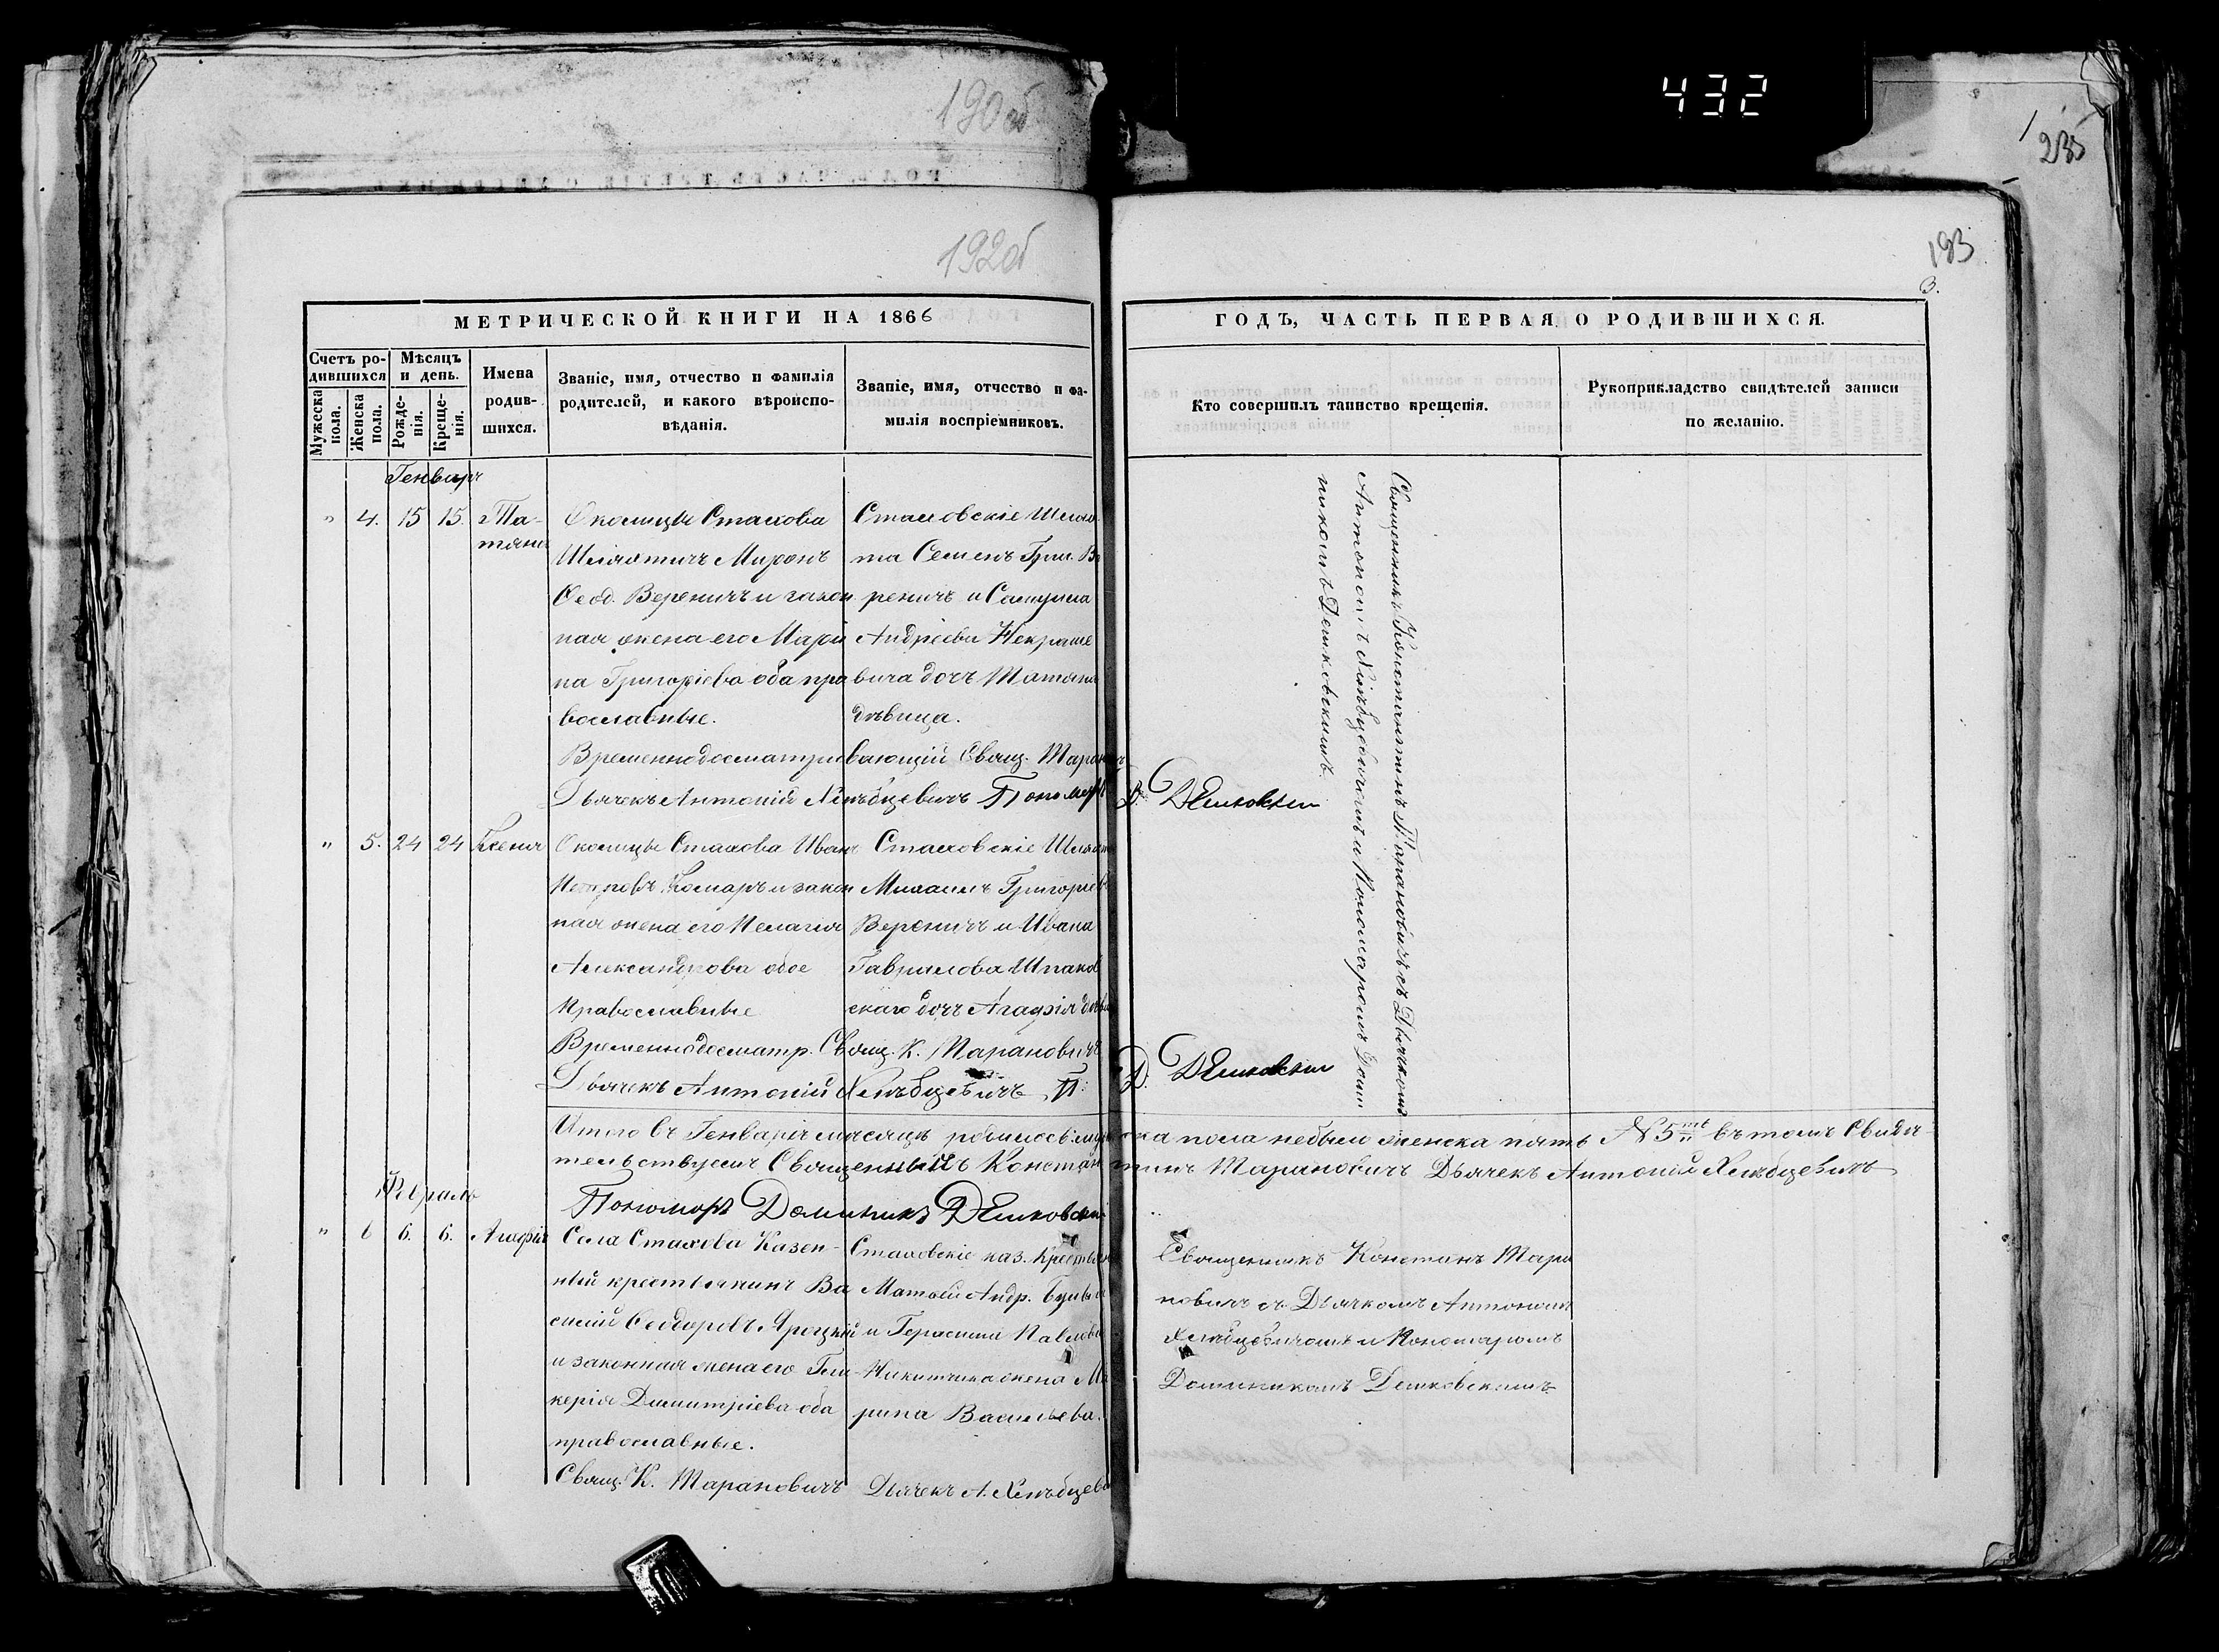 432
190 об
1
235
192 об
193
3.
МЕТРИЧЕСКОЙ КНИГИ НА 1866
ГОДЪ, ЧАСТЬ ПЕРВАЯ О РОДИВШИХСЯ.
Счетъ родившихся
Мѣсяцъ и день.
Мужеска пола.
Женска пола.
Рожденія.
Крещенія.
Имена родившихся.
Званіе, имя, отчество и фамилія
родителей, и какого вѣроиспо-
вѣданія.
Званіе, имя, отчество и фа-
милія воспріемниковъ.
Кто совершилъ таинство крещенія.
Рукоприкладство свидѣтелей записи
по желанію.
Генварь
" 4. 15 15. Та-
тяна
Околицы Стахова
Шляхтичъ Миронъ
Ѳеод. Вереничъ и закон
ная жена его Мари
на Григоріева оба пра
вославные.
Стаховскіе Шлях
та Семенъ Григ. Ве
реничъ и Самуила
Андреева Некраше
вича дочъ Татяна
дѣвица.
Временнодосматривающій Свящ. Тарановичъ
Дьячекъ Антоній Хлѣбцевичъ Пономарь
Д. Демковскій
Священникъ Константинъ Тарановичъ съ Дьячкомъ
Антоніемъ Хлѣбцевичемъ и Пономаремъ Доми
никомъ Демковскимъ
" 5. 24 24 Ксенія
Околицы Стахова Иванъ
Петровъ Комаръ и закон
ная жена его Пелагія
Александрова обое
Православные
Стаховскіе Шляхта
Михаилъ Григорiев
Вереничъ и Ивана
Гаврилова Шпаков
скаго дочъ Агафія дѣви
Временнодосматр. Свящ. К. Тарановичъ
Дьячекъ Антоній Хлѣбцевичъ П:
Д. Демковскій
Итого въ Генварѣ мѣсяцѣ родилось: мужеска пола небыло женска пять № 5 въ томъ Свидѣ-
тельствуемъ Священникъ Константинъ Тарановичъ Дьячекъ Антоній Хлѣбцевичъ
Пономарь Доминикъ Демковскій
Февраль
" 6 6. 6. Агафія
Села Стахова Казен-
ный крестьянинъ Ва
силій Ѳеодоровъ Яроцкій
и законная жена его Гли-
керія Димитріева оба
православные.
Стаховскіе каз. Крестьяне
Матѳей Андр.
и Герасима Павлова
Никитчика жена Ма
рина Васильева.
Священникъ Констанъ Тара
новичъ съ Дьячкомъ Антоніемъ
Хлѣбцевичемъ и Пономаремъ
Доминикомъ Демковскимъ
Свящ. К. Тарановичъ Дьячекъ А. Хлѣбцеви